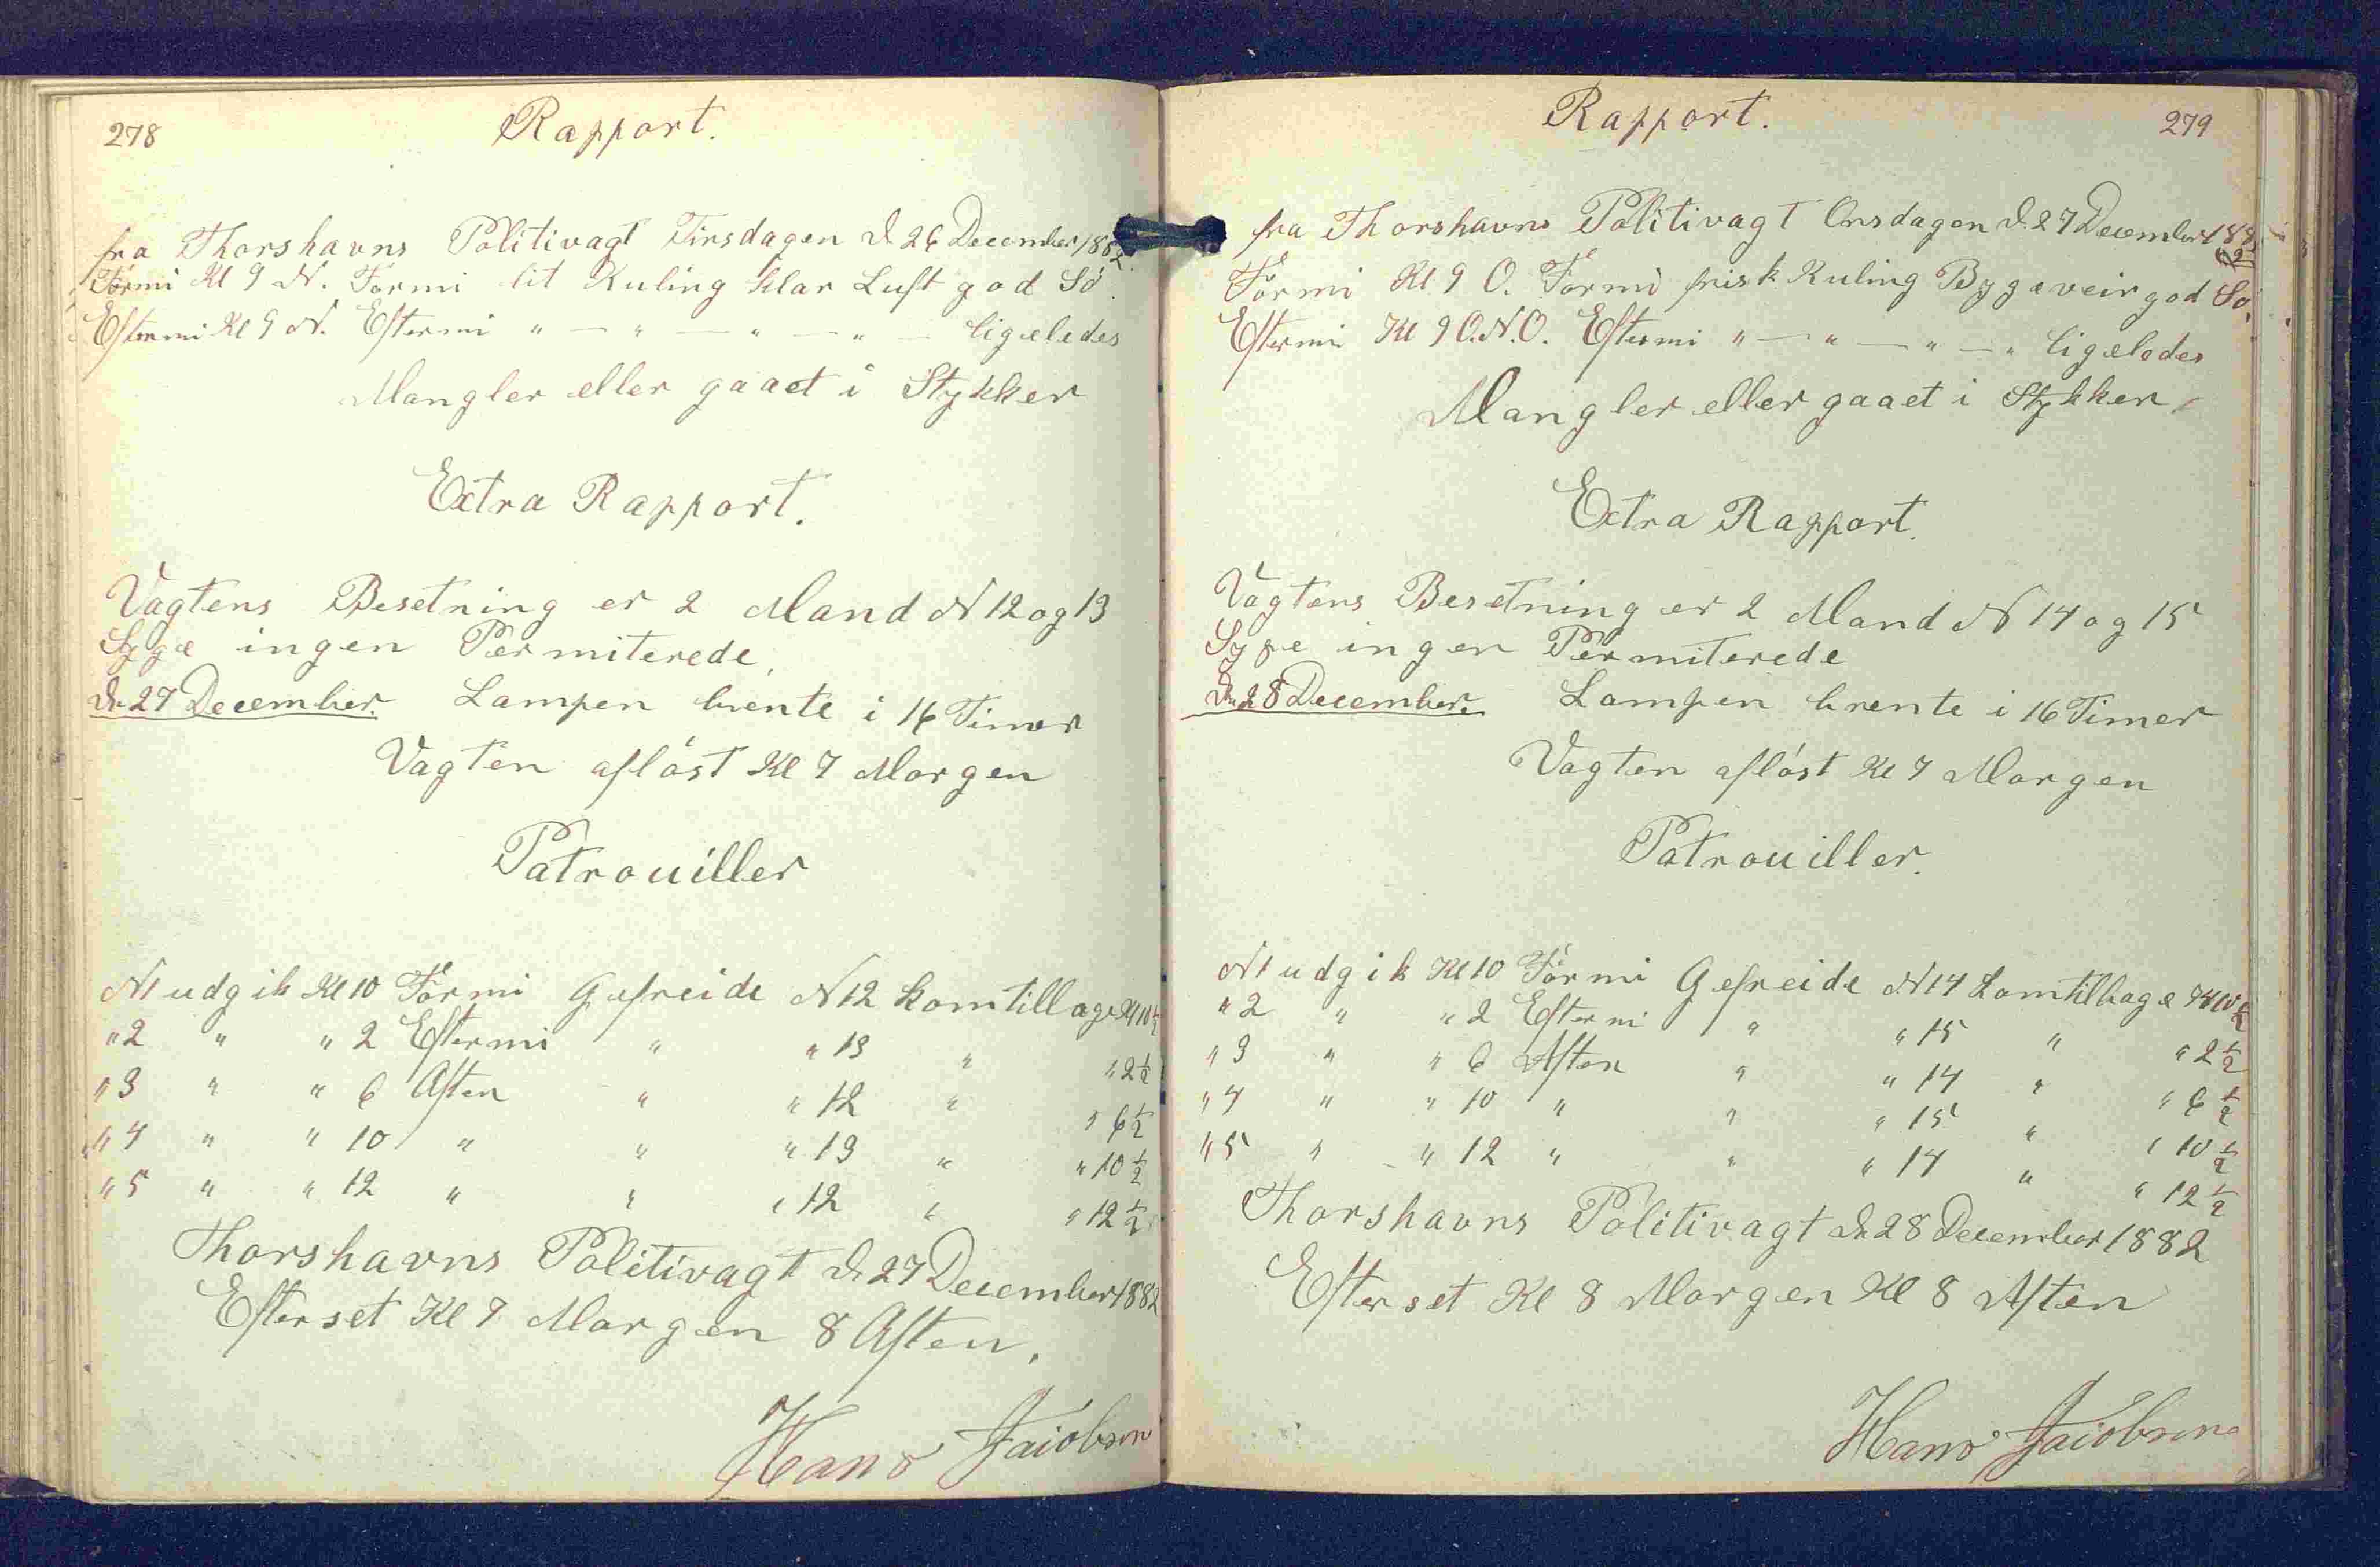 278
Rapport.
fra Thorshavns Politivagt Tirsdagen d 26 December 1882.
Formi Kl 9 N. Formi lit Kuling klar Luft god Sö.
Eftermi Kl 9 N. Eftermi " — " — " — " — ligeledes
Mangler eller gaaet i Stykker
Extra Rapport.
Vagtens Besetning er 2 Mand N 12 og 13
Syge ingen Permiterede,
d. 27 December. Lampen brente i 16 Timer
Vagten aflöst Kl 7 Morgen
Patrouiller
N1 udgik Kl 10 Formi Gefreide N 12 kom tilbage Kl 10 1/2
" 2 " " 2 Eftermi " " 13 " " 2 1/2
" 3 " " 6 Aften " " 12 " " 6 1/2
" 4 " " 10 " " " 13 " " 10 1/2
" 5 " " 12 " " " 12 " " 12 1/2
Thorshavns Politivagt d. 27 December 1882
Efterset Kl 7 Morgen 8 Aften.
Hans Jacobsen
Rapport.
279
fra Thorshavns Politivagt Onsdagen d. 27 December 1882
Formi Kl 9 O. Formi frisk Kuling Bygeveir god Sö.
Eftermi Kl 9 O.N.O. Eftermi " — " — " — " ligeledes
Mangler eller gaaet i Stykker
Extra Rapport.
Vagtens Besetning er 2 Mand N 14 og 15
Syge ingen Permiterede
d. 28 December. Lampen brente i 16 Timer
Vagten aflöst Kl 7 Morgen
Patrouiller.
N1 udgik Kl 10 Formi Gefreide N 14 kom tilbage Kl 10 1/2
" 2 " " 2 Eftermi " " 15 " " 2 1/2
" 3 " " 6 Aften " " 14 " " 6 1/2
" 4 " " 10 " " " 15 " " 10 1/2
" 5 " " 12 " " " 14 " " 12 1/2
Thorshavns Politivagt d. 28 December 1882
Efterset Kl 8 Morgen Kl 8 Aften
Hans Jacobsen